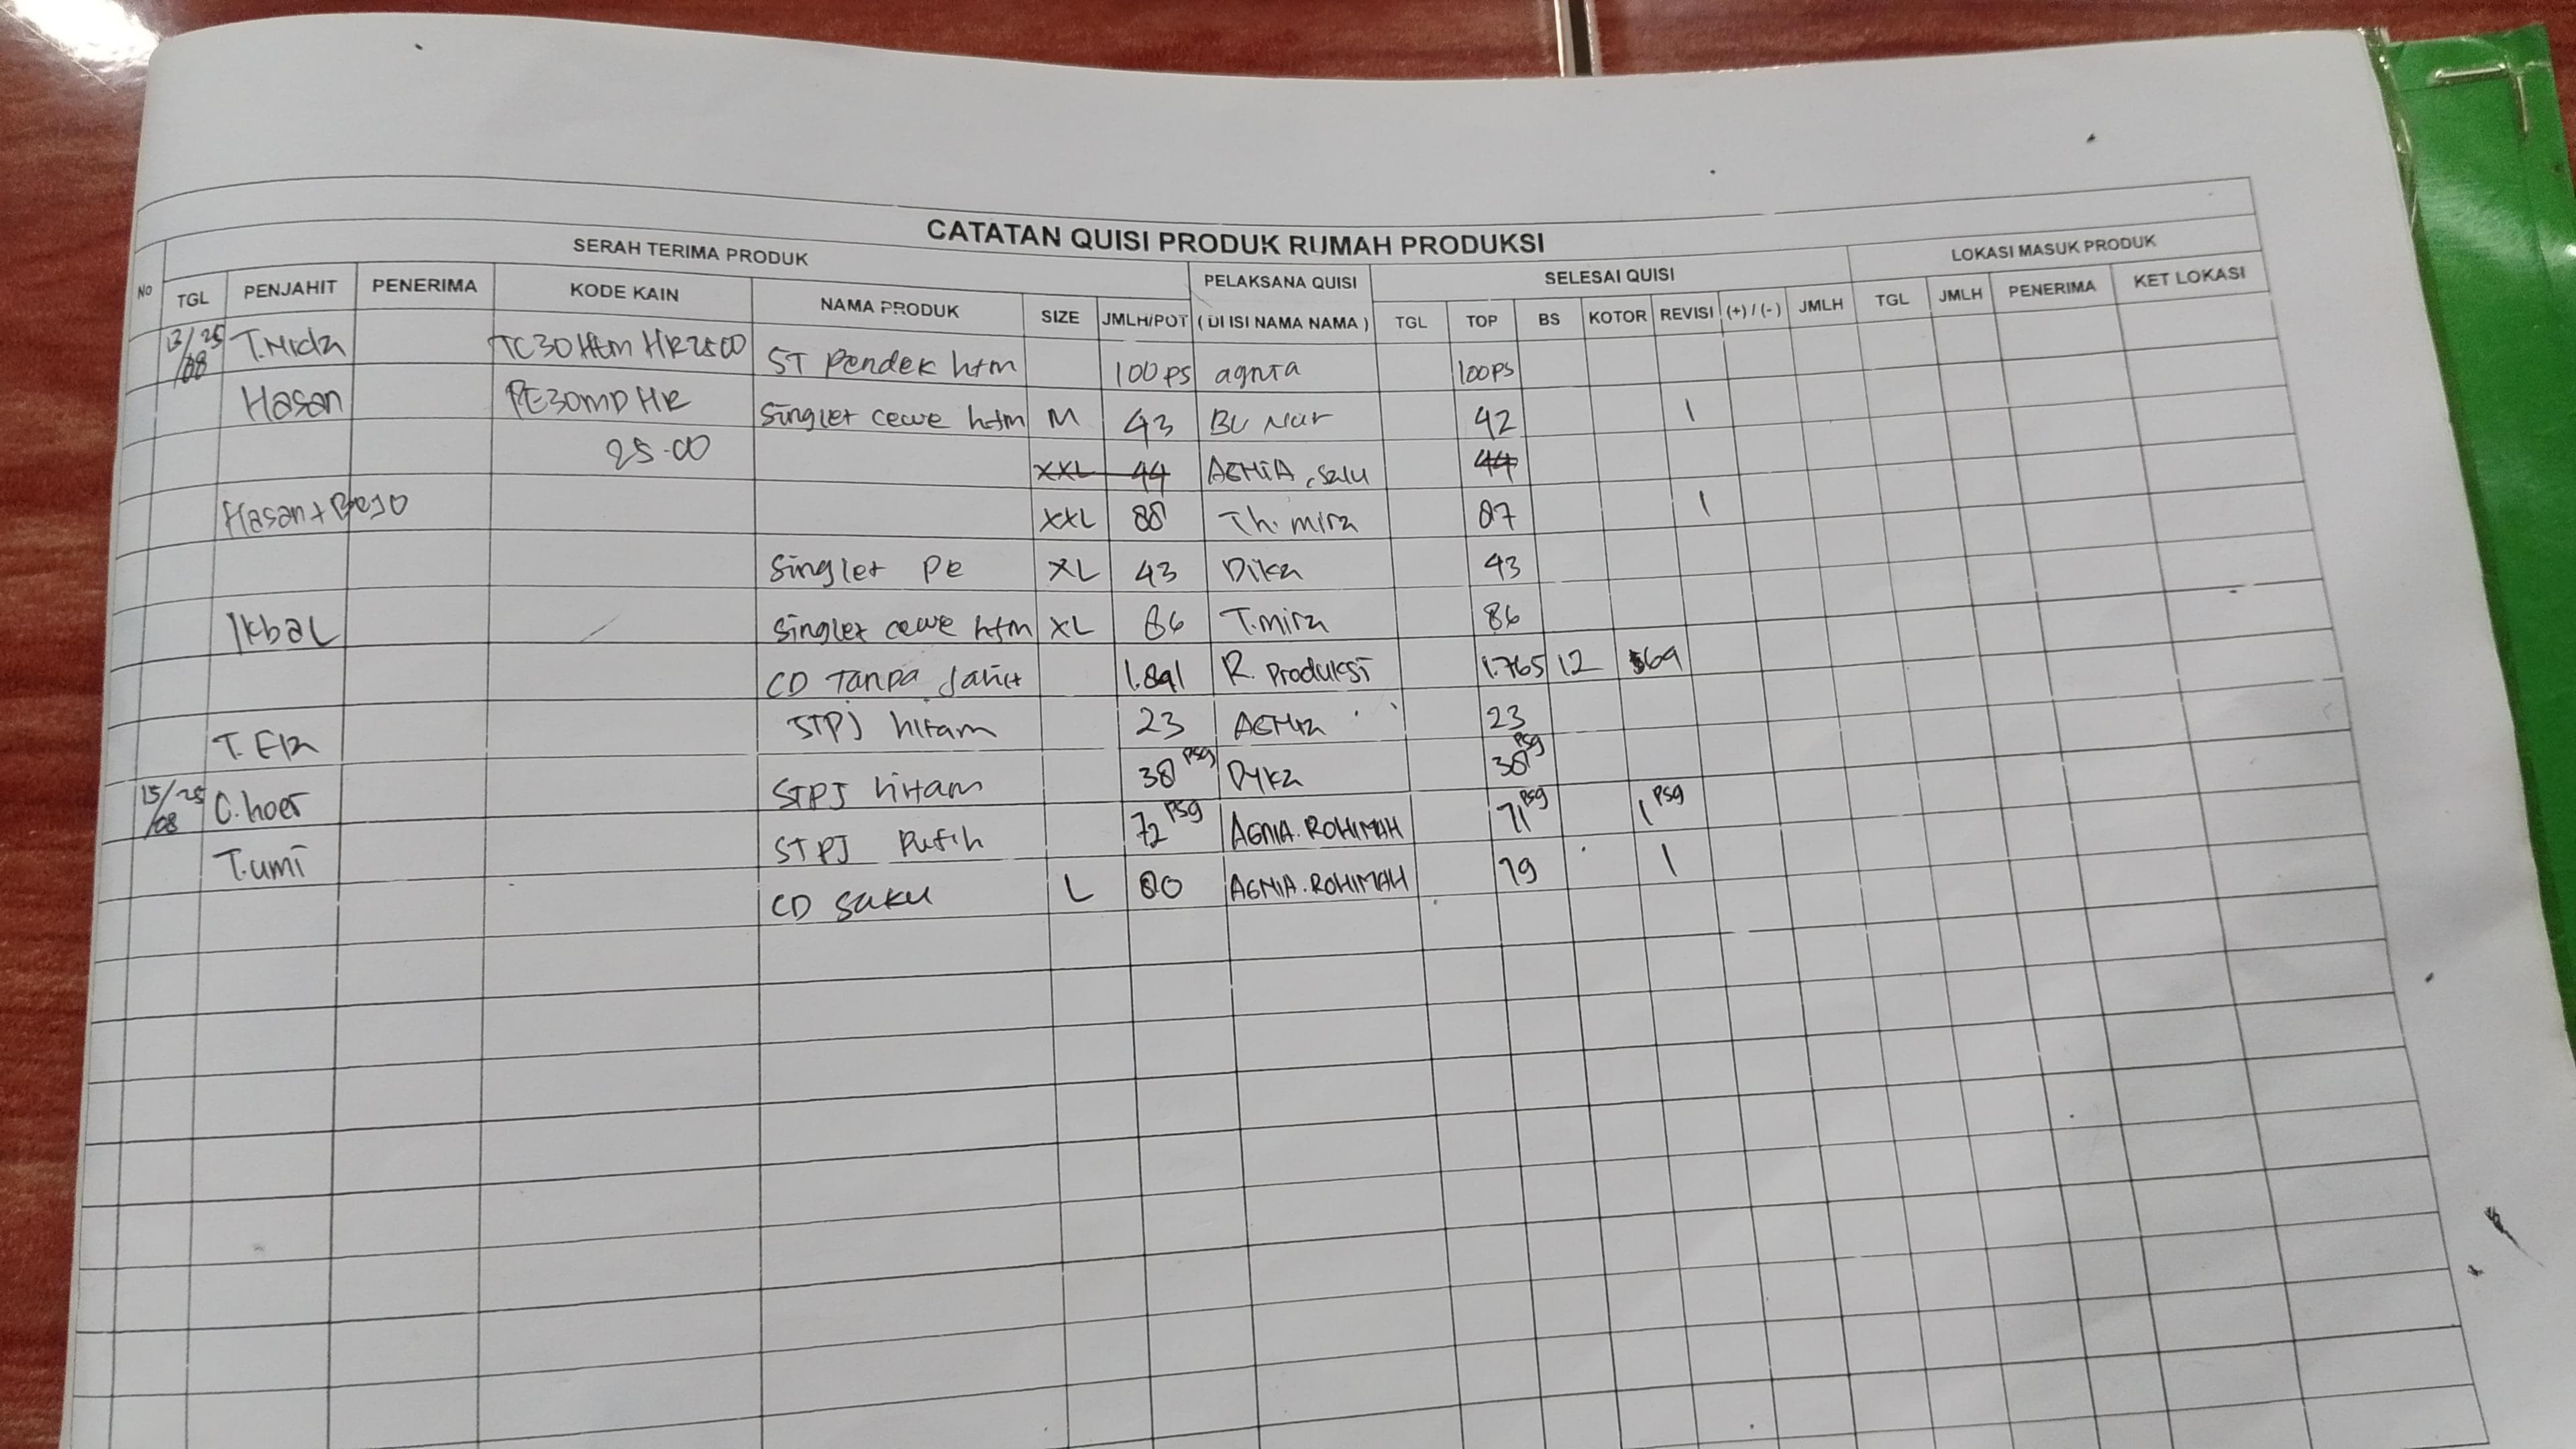 CATATAN QUISI PRODUK RUMAH PRODUKSI
No SERAH TERIMA PRODUK PELAKSANA QUISI SELESAI QUISI LOKASI MASUK PRODUK
TGL PENJAHIT PENERIMA KODE KAIN NAMA PRODUK SIZE JMLH/POT ( DI ISI NAMA NAMA ) TGL TOP BS KOTOR REVISI (+) / (-) JMLH TGL JMLH PENERIMA KET LOKASI
13/25 /08 T.Nida TC30 Htm HR2500 ST Pendek htm 100 ps agnia 100 PS
Hasan PE30MD HR Singlet cewe htm M 43 BU Nur 42 1
25.00 XXL 44 AGNIA, Salu 44
Hasan + Bojo XXL 88 Th. mira 87 1
Singlet PE XL 43 Dika 43
Ikbal Singlet cewe htm XL 86 T.mira 86
CD Tanpa Jahit 1.891 R. Produksi 1.765 12 69
T. Ela STPJ hitam 23 AGNIA 23
15/25 /08 C. hoer STPJ hitam 38 psg Dyka 38 psg
T.umi STPJ Putih 72 psg AGNIA. ROHIMAH 71 psg 1 psg
CD Saku L 80 AGNIA. ROHIMAH 79 1